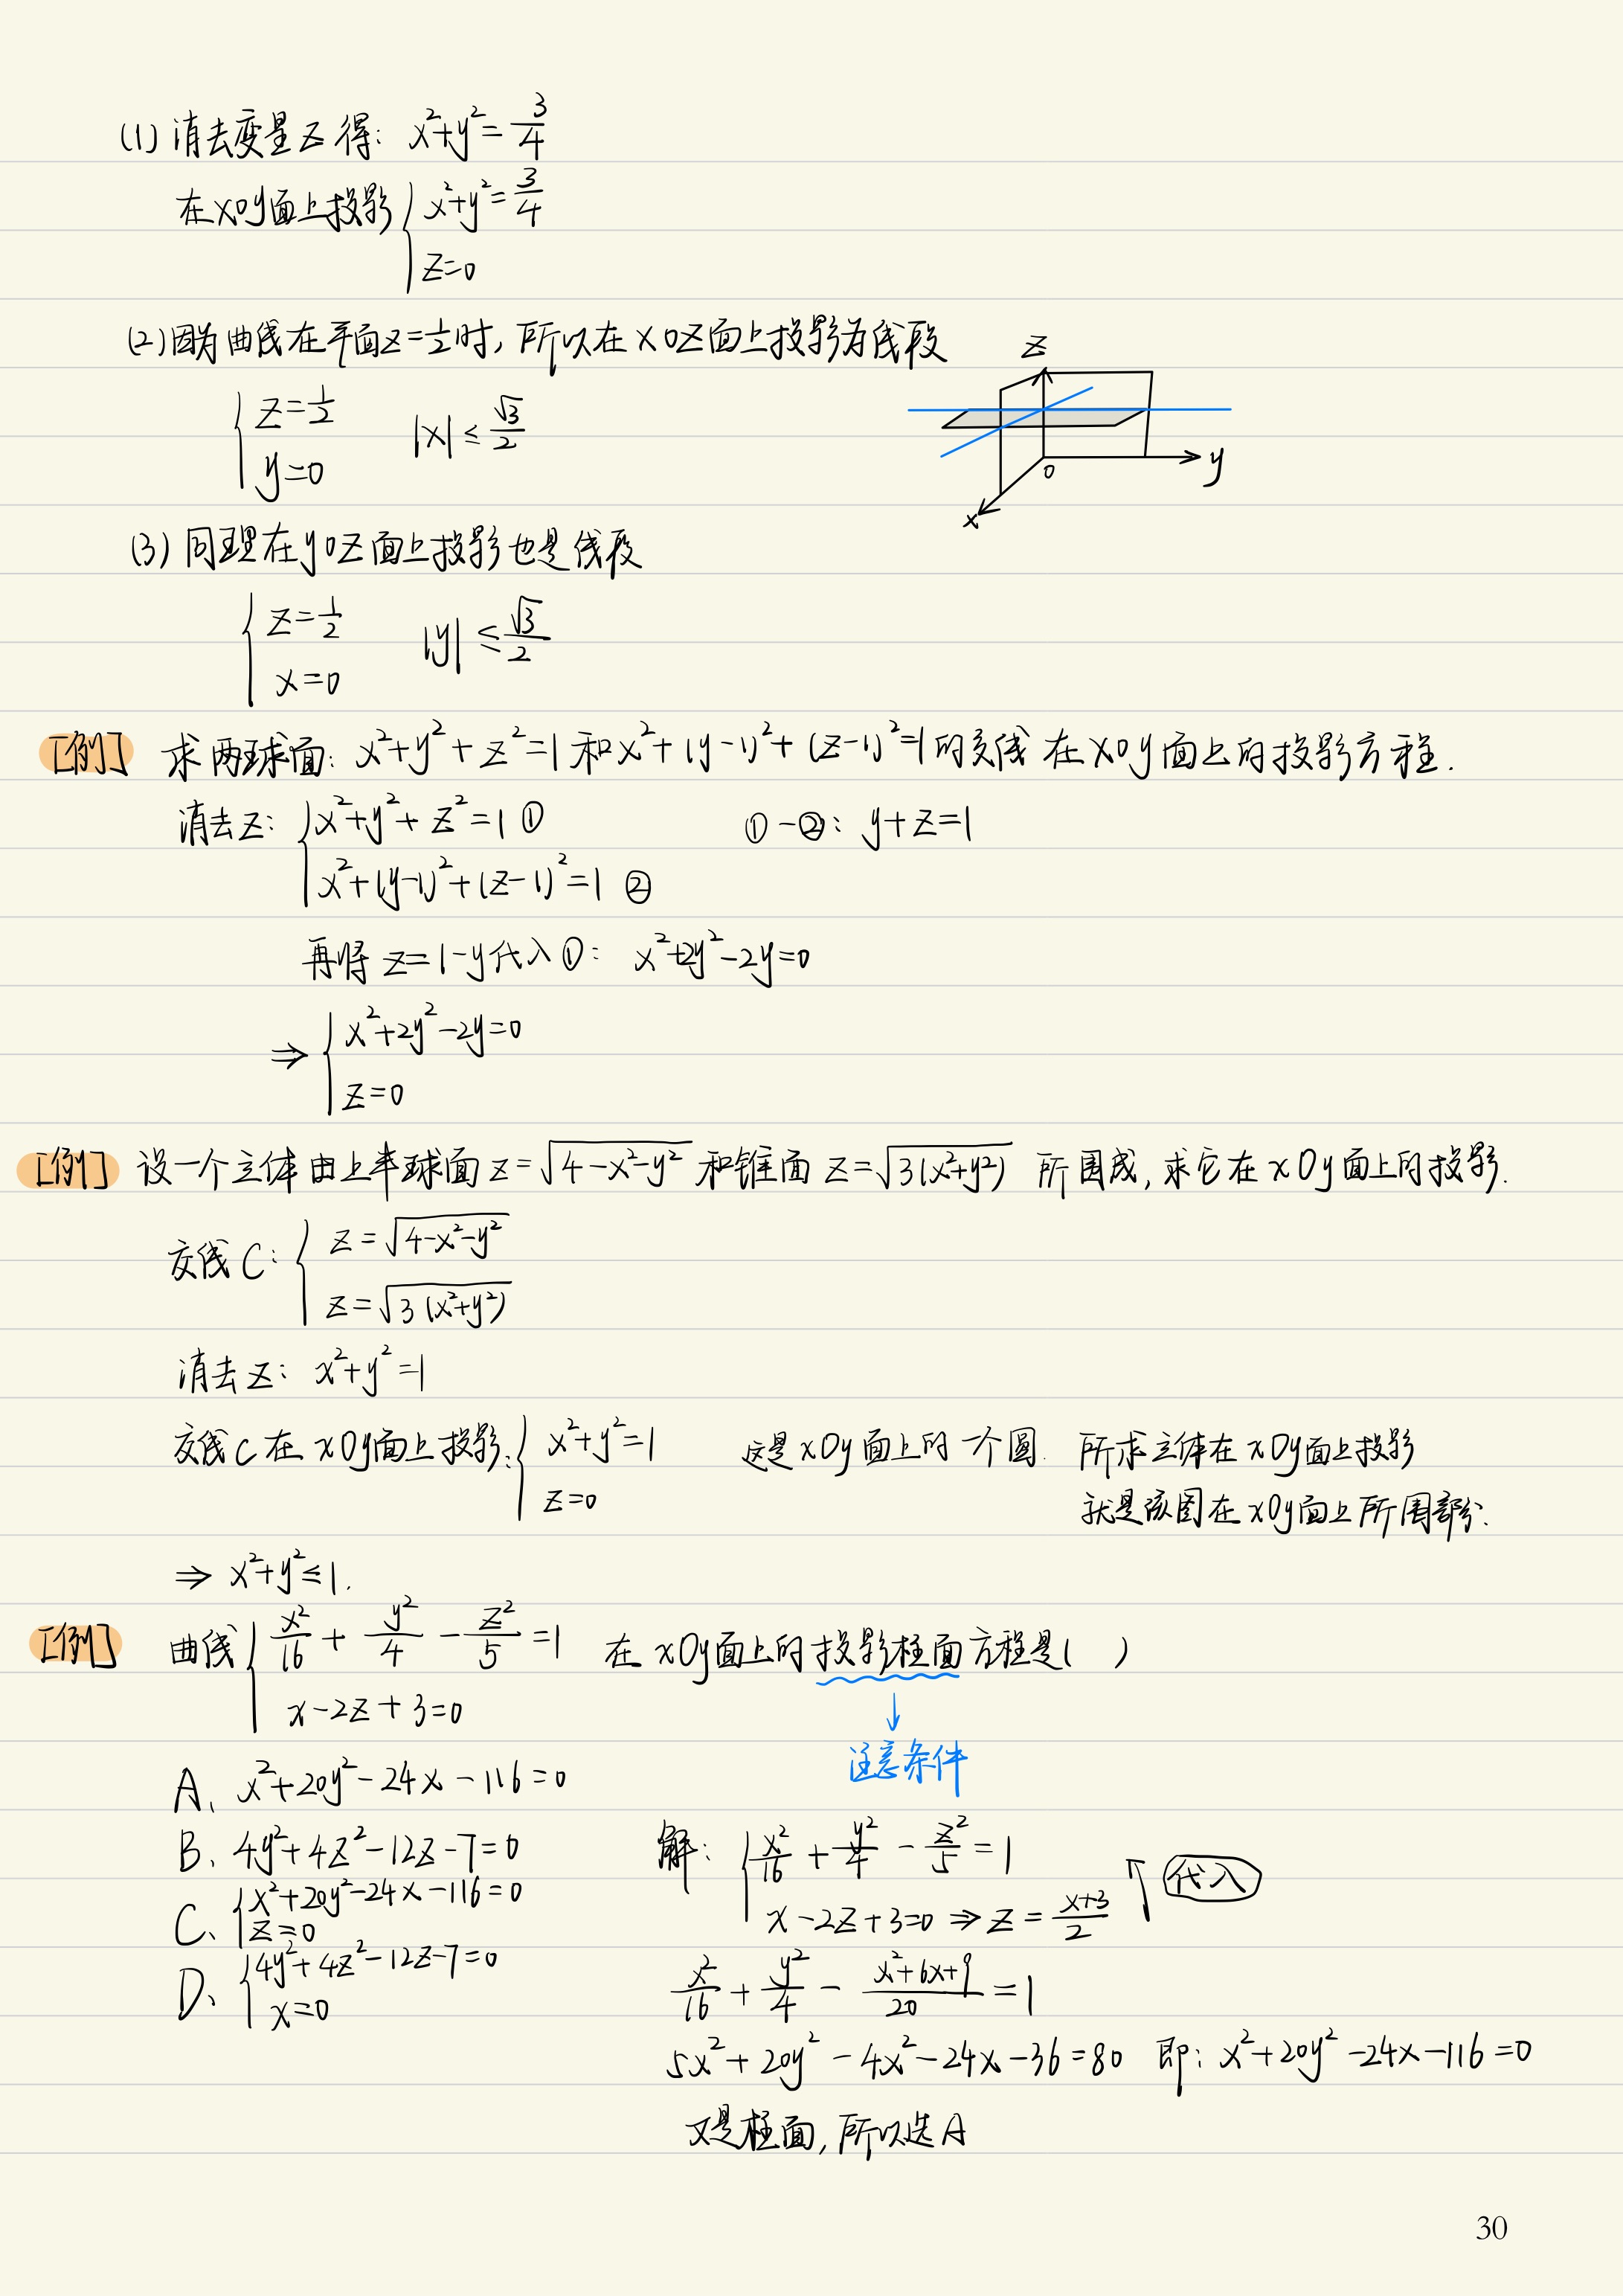 (1) 消去变量z得: x²+y²=3/4
在xoy面上投影{x²+y²=3/4
z=0
(2)因为曲线在平面z=1/2时, 所以在xoz面上投影为线段
{z=1/2
y=0 |x|≤√3/2
z
y
x
0
(3) 同理在yoz面上投影也是线段
{z=1/2
x=0 |y|≤√3/2
[例] 求两球面: x²+y²+z²=1和x²+(y-1)²+(z-1)²=1的交线在xoy面上的投影方程.
消去z: {x²+y²+z²=1 ① ①-②: y+z=1
x²+(y-1)²+(z-1)²=1 ②
再将z=1-y代入①: x²+2y²-2y=0
⇒{x²+2y²-2y=0
z=0
[例] 设一个立体由上半球面z=√(4-x²-y²)和锥面z=√(3(x²+y²))所围成, 求它在xOy面上的投影.
交线C: {z=√(4-x²-y²)
z=√(3(x²+y²))
消去z: x²+y²=1
交线C在xOy面上投影:{x²+y²=1 这是xOy面上的一个圆. 所求立体在xOy面上投影
z=0 就是该图在xOy面上所围部分.
⇒ x²+y²≤1.
[例] 曲线{x²/16+y²/4-z²/5=1 在xOy面上的投影柱面方程是( )
x-2z+3=0
注意条件
A、x²+20y²-24x-116=0
B、4y²+4z²-12z-7=0
C、{x²+20y²-24x-116=0
z=0
D、{4y²+4z²-12z-7=0
x=0
解: {x²/16+y²/4-z²/5=1
x-2z+3=0 ⇒ z=(x+3)/2 ↑代入
x²/16+y²/4-(x²+6x+9)/20=1
5x²+20y²-4x²-24x-36=80 即: x²+20y²-24x-116=0
又是柱面, 所以选A
30